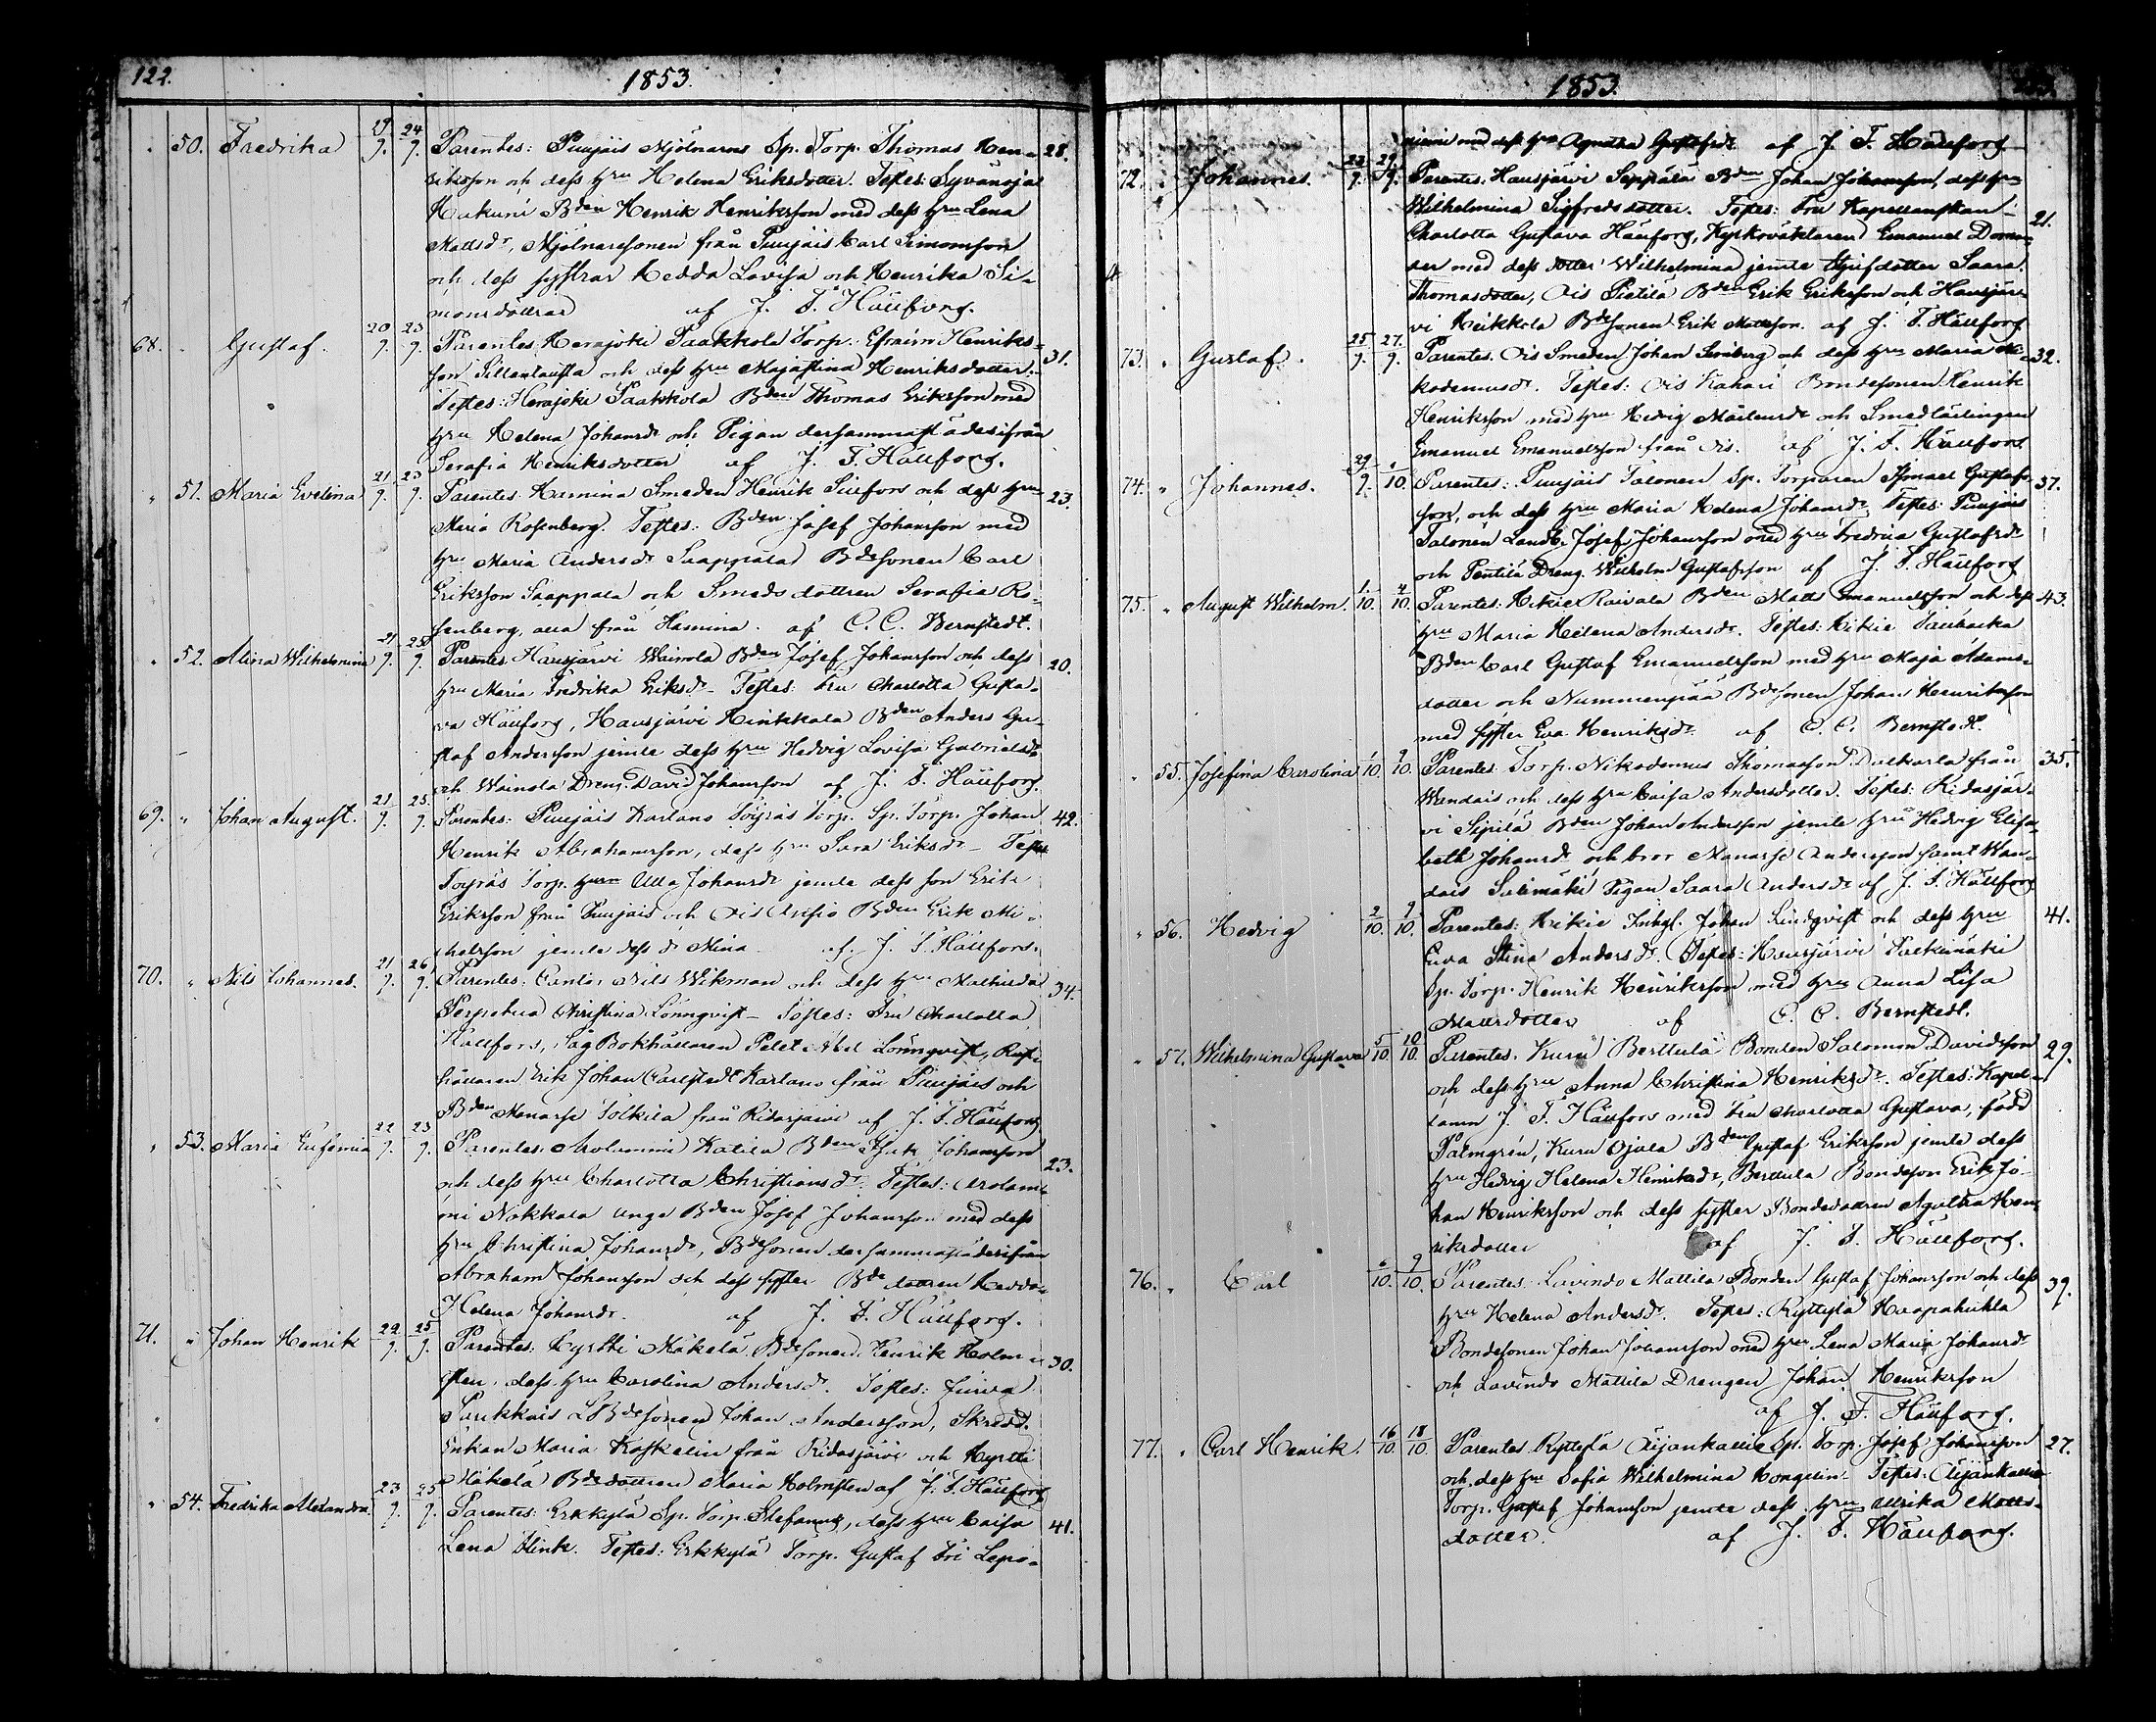 122. 1853.
50. Fredrika 19/9. 24/9. Parentes: Puujais Mjölnarens Sp. Torp. Thomas Hen- 28.
riksson och dess hru Helena Eriksdotter. Testes: Syvänoja
Hakuni Bden Henrik Henriksson med dess hru Lena
Mattsdr, Mjölnaresonen från Puujais Carl Simonsson
och dess systrar Hedda Lovisa och Henrika Si-
monsdöttrar af J. F. Hällforg.
68. Gustaf. 20/9. 23/9. Parentes: Herajoki Paakkola Torp. Efraim Henriks- 31.
son och dess hru Majastina Henriksdotter.
Testes: Herajoki Paakkola Bden Thomas Eriksson med
hru Helena Johansdr och Pigan dersammastädesifrån
Serafia Henriksdotter af J. F. Hällforg.
" 51. Maria Evelina 21/9. 23/9. Parentes: Hamina Smeden Henrik Silfors och dess hru 23.
Maria Rosenberg. Testes: Bden Josef Johansson med
hru Maria Andersdr Saappala Bdesonen Carl
Eriksson Saappala och Smedsdottren Serafia Ro-
senberg, alla från Hamina. af C. C. Bernstedt.
" 52. Alina Wilhelmina 21/9. 25/9. Parentes Hausjärvi Wainola Bden Josef Johansson och dess 20.
hru Maria Fredrika Eriksdr. Testes: Fru Charlotta Gusta-
va Hällforg, Hausjärvi Hinkkala Bden Anders Gu-
staf Andersson jemte dess hru Hedvig Lovisa Gabrielsdr
och Wainola Dreng. David Johansson af J. F. Hällforg.
69. " Johan August. 21/9. 25/9. Parentes: Puujais Karlans Töyräs Torp. Sp. Torp. Johan 42.
Henrik Abrahamsson, dess hru Sara Eriksdr. Testes
Töyräs Torp. hru Ulla Johansdr jemte dess son Erik
Eriksson från Puujais och Ois Bden Erik Mi-
chelsson jemte dess dr Mina af J. F. Hällfors.
70. " Nils Johannes. 21/9. 26/9. Parentes: Cantor Nils Wikman och dess hru Mathilda 34.
Perpetua Christina Lönnqvist. Testes: Fru Charlotta
Hällfors, Såg Bokhållaren Abel Lönnqvist, Rust-
hållaren Erik Johan Carlstedt Karlans från Puujais och
Bden Manasse Tölkila från Ridasjärvi af J. F. Hällforg
" 53. Maria Eufemia 22/9. 23/9. Parentes: Arolammi Katila Bden Isak Johansson 23.
och dess hru Charlotta Christiansdr. Testes: Arolam-
mi Nokkala unge Bden Josef Johansson med dess
hru Christina Johansdr, Bdesonen dersammastädesifrån
Abraham Johansson och dess syster Bdedottren Hedda
Helena Johansdr. af J. F. Hällforg.
71. " Johan Henrik 22/9. 25/9. Parentes: Hyrtti Mäkelä Bdesonen Henrik Holm- 30.
sten, dess hru Carolina Andersdr. Testes: Jurva
Parikkais LBdesonen Johan Andersson, Skredd.
Enkan Maria Koskelin från Ridasjärvi och Hyrtti
Mäkelä Bdedottren Maria Holmsten af J. F. Hällforg
" 54. Fredrika Alexandra. 23/9. 25/9. Parentes: Erkkylä Sp. Torp. Stefanus, dess hru Caisa 41.
Lena Flink. Testes: Erkkylä Torp. Gustaf Fri Lepo-
1853.
niemi med dess hru Agneta Gustafsdr af J. F. Hällforg
72. " Johannes. 22/9. 29/9. Parentes. Hausjärvi Seppälä Bden Johan Johansson, dess hru
Wilhelmina Sigfredsdotter. Testes: Fru Kapellanskan 21.
Charlotta Gustava Hällforg, Kyrkoväktaren Emanuel Doman-
der med dess dotter Wilhelmina jemte Styfdotter Saara
Thomasdotter, Ois Pietilä Bden Erik Eriksson och Hausjär-
vi Heikkola Bdesonen Erik Mattsson. af J. F. Hällforg
73. " Gustaf. 25/9. 27/9. Parentes. Ois Smeden Johan Grönberg och dess hru Maria Ni- 32.
kodemusdr. Testes: Ois Kahari Bondesonen Henrik
Henriksson med hru Hedvig och Smedlärlingen
Emanuel Emanuelsson från Ois. af J. F. Hällfors
74. " Johannes. 29/9. /10. Parentes: Puujais Talonen Sp. Torparen Ismael Gustafs- 37.
son, och dess hru Maria Helena Johansdr. Testes: Puujais
Talonen Landb. Josef Johansson med hru Fredrica Gustafsdr
och Pentilä Dreng. Wilhelm Gustafsson af J. F. Hällforg
75. " August Wilhelm. 1/10. 4/10. Parentes: Hikiä Raivala Bden Matts Emanuelsson och dess 43.
hru Maria Helena Andersdr. Testes: Hikiä
Bden Carl Gustaf Emanuelsson med hru Maja Adams-
dotter och Nummenpää Bdesonen Johan Henriksson
med syster Eva Henriksdr. af C. C. Bernstedt.
" 55. Josefina Carolina 1/10. 9/10. Parentes: Torp. Nikodemus Thomasson Dalkarla från 35.
Wandais och dess hru Caisa Andersdotter. Testes: Ridasjär-
vi Sipilä Bden Johan Andersson jemte hru Hedvig Elisa-
beth Johansdr och bror Manasse Andersson samt Wan-
dais Salimäki Pigan Saara Andersdr af J. F. Hällforg
" 56. Hedvig 2/10. 9/10. Parentes: Hikiä Inhyl. Johan Lindqvist och dess hru 41.
Eva Stina Andersdr. Testes: Hausjärvi Palkimäki
Sp. Torp. Henrik Henriksson med hru Anna Lisa
Mattsdotter af C. C. Bernstedt.
" 57. Wilhelmina Gustava 5/10. 10/10. Parentes. Kuru Berttula Bonden Salomon Davidsson 29.
och dess hru Anna Christina Henriksdr. Testes: Kapel-
lanen J. F. Hällfors med Fru Charlotta Gustava, född
Palmgrén, Kuru Ojala Bden Gustaf Eriksson jemte dess
hru Hedvig Helena Henriksdr, Berttula Bondeson Erik Jo-
han Henriksson och dess syster Bondedottren Agatha Hen-
riksdotter af J. F. Hällforg.
76. " Carl 6/10. 9/10. Parentes: Lavindo Mattila Bonden Gustaf Johansson och dess 39.
hru Helena Andersdr. Testes: Ryttylä Haapahuhta
Bondesonen Johan Johansson med hru Lena Maria Johansdr
och Lavindo Mattila Drengen Johan Henriksson
af J. F. Hällforg.
77. " Carl Henrik. 16/10. 18/10. Parentes Ryttylä Äijänkallio Sp. Torp. Josef Johansson 27.
och dess hru Sofia Wilhelmina Kongelin. Testes: Äijänkallio
Torp. Gustaf Johansson jemte dess hru Ulrika Matts-
dotter. af J. F. Hällforg.